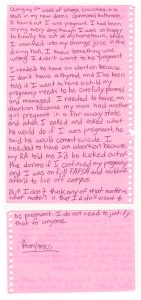 During my 1st week of college, crouched in a
stall in my new dorm's communal bathroom,
I found out I was pregnant. I had been
crying every day though I was so happy
to finally be out of my hometown. When
I vomited into my orange juice in the
dining hall, I knew something was
wrong. I didn't want to be pregnant.
I needed to have an abortion because
I don't have a thyroid and I've been
told if I want to have a child my
pregnancy needs to be carefully planned
and managed. I needed to have an
abortion because my mom had another
girl pregnant in a far away state
and when I called and asked what
he would do if I was pregnant, he
said he would commit suicide. I
needed to have an abortion because
my RA told me I'd be kicked out of
the dorms if I continued my pregnancy
and I was on full FAFSA and couldn't
afford to live off campus.
But I don't think any of that matters,
what matters is that I didn't want to
be pregnant. I do not need to justify
that to anyone.
Anonymous